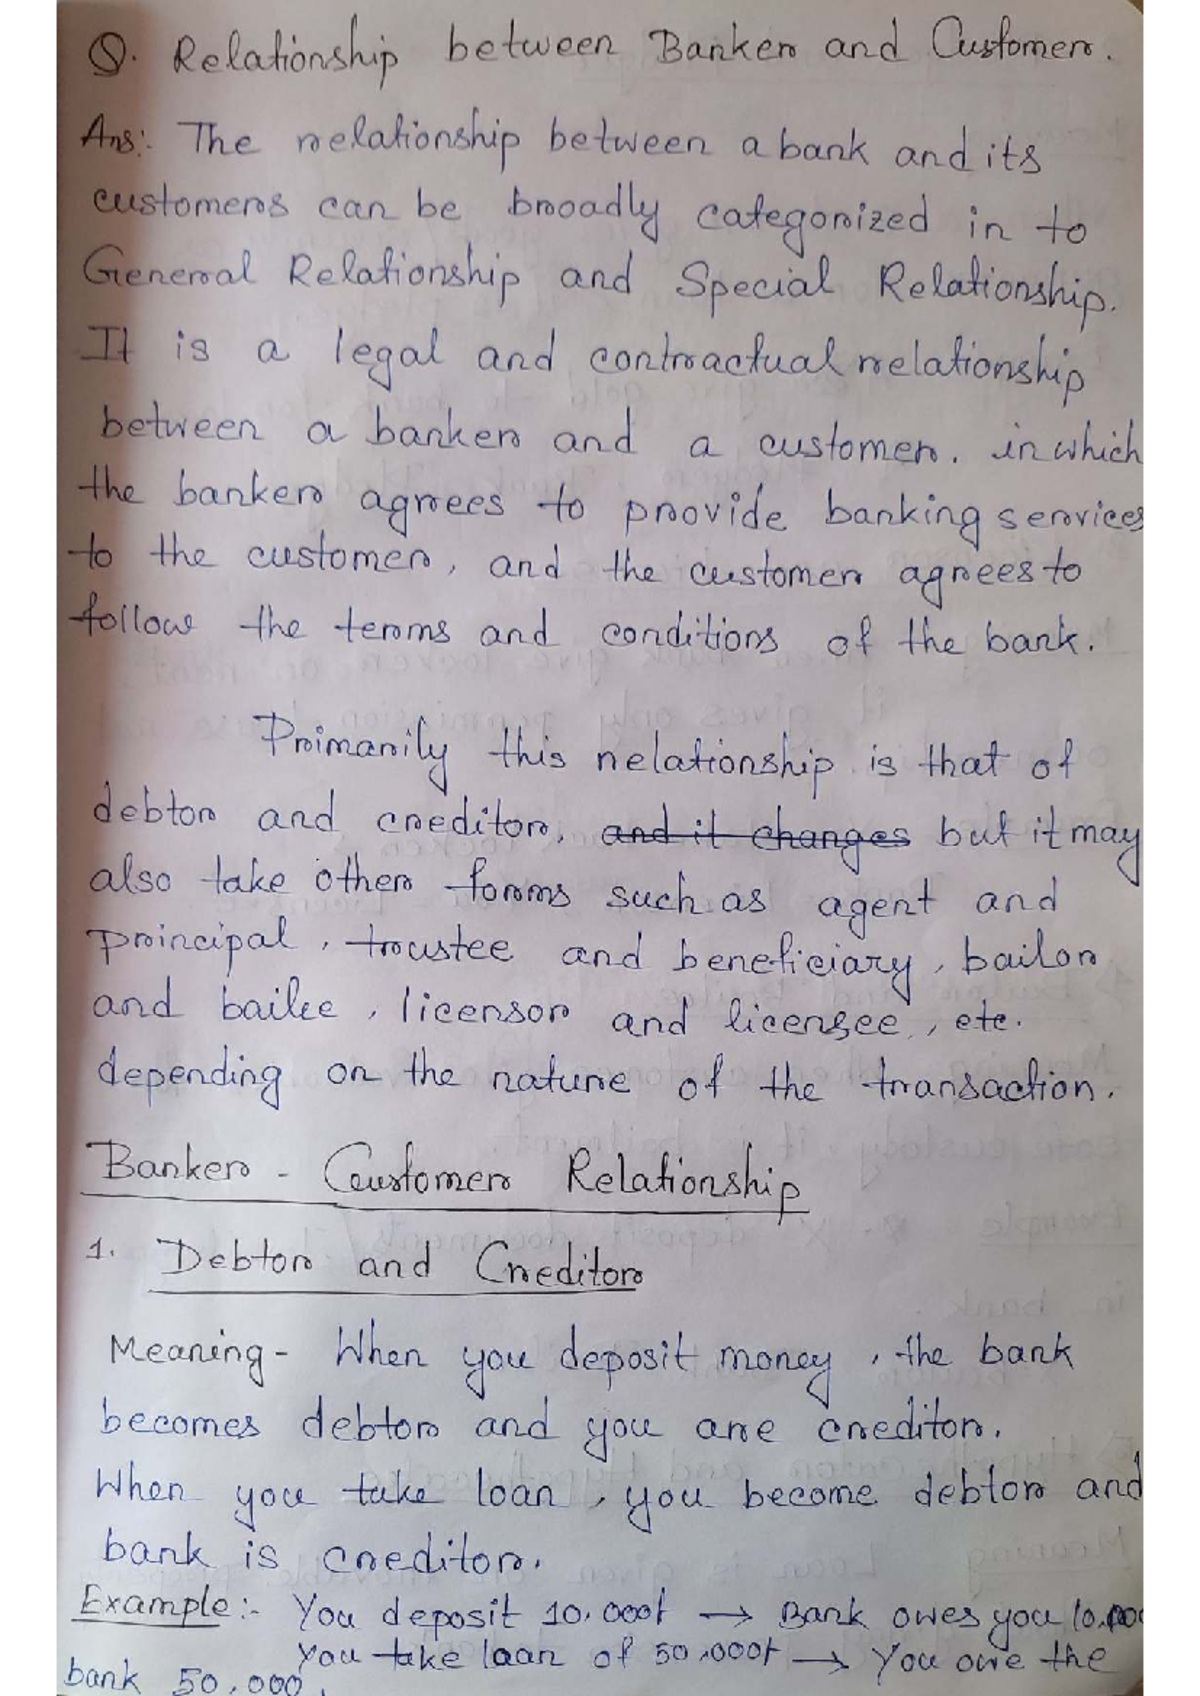 Q. Relationship between Banker and Customer.
Ans:. The relationship between a bank and its
customers can be broadly categorized in to
General Relationship and Special Relationship.
It is a legal and contractual relationship
between a banker and a customer. in which
the banker agrees to provide banking services
to the customer, and the customer agrees to
follow the terms and conditions of the bank.
Primarily this relationship is that of
debtor and creditor, and it changes but it may
also take other forms such as agent and
principal, trustee and beneficiary, bailor
and bailee, licensor and licensee, etc.
depending on the nature of the transaction.
Banker - Customer Relationship
1. Debtor and Creditor
Meaning - When you deposit money, the bank
becomes debtor and you are creditor.
When you take loan, you become debtor and
bank is creditor.
Example:- You deposit 10,000₹ → Bank owes you 10,000
You take loan of 50,000₹ → You owe the
bank 50,000.